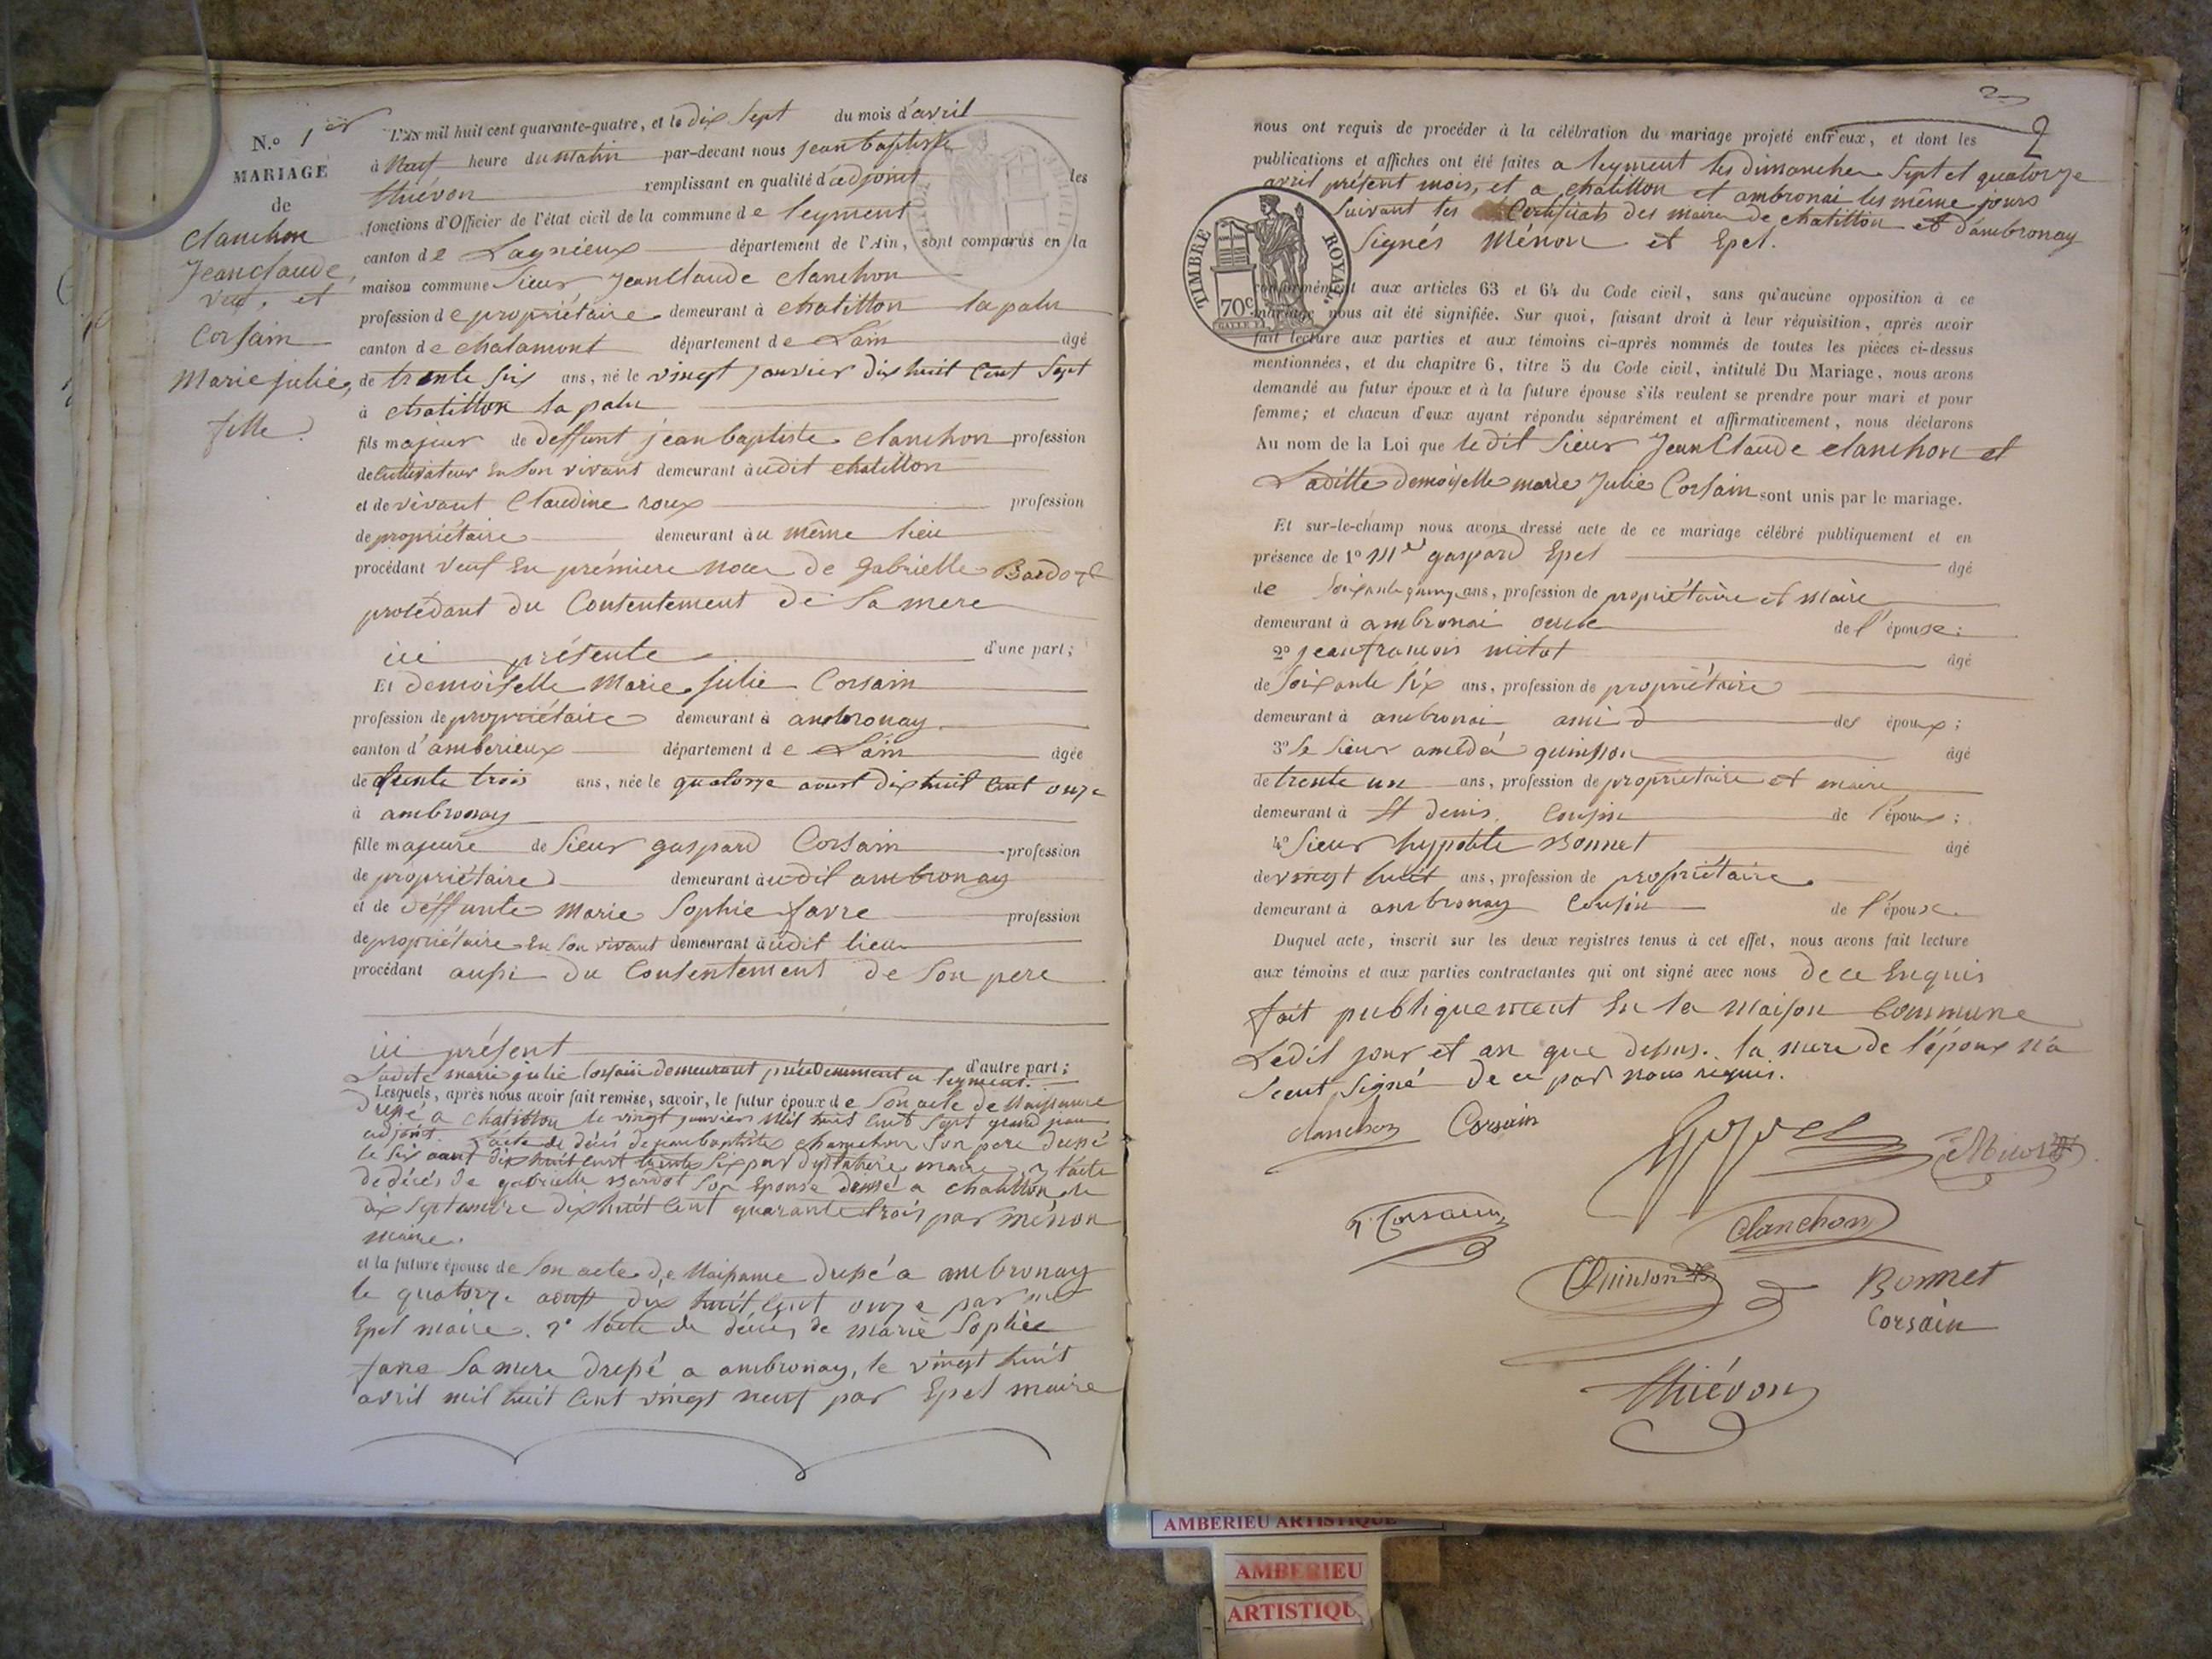 N.o 1er
MARIAGE
de
Clanchon
Jean Claude,
veuf, et
Corsain
Marie julie,
fille.
L'an mil huit cent quarante-quatre, et le dix sept du mois d'avril
à Neuf heure du matin par-devant nous jean baptiste
thiévon remplissant en qualité d'adjoint les
fonctions d'Officier de l'état civil de la commune de leyment
canton de Lagnieux département de l'Ain, sont comparus en la
maison commune Sieur Jean Claude Clanchon
profession de propriétaire demeurant à chatillon la palu
canton de chalamont département de Lain âgé
de trente six ans, né le vingt janvier dix huit Cent Sept
à chatillon la palu
fils majeur de deffunt jean baptiste Clanchon profession
de Cultivateur En Son vivant demeurant àudit chatillon
et de vivant Claudine roux profession
de propriétaire demeurant àu même lieu
procédant veuf En prémiere noce de gabrielle Bardot
procédant du Contentement de Sa mere
ici présente d'une part;
Et demoiselle Marie Julie Corsain
profession de propriétaire demeurant à ambronay
canton d'amberieux département de Lain âgée
de trente trois ans, née le quatorze aout dix huit Cent onze
à ambronay
fille majeure de Sieur gaspard Corsain profession
de propriétaire demeurant àudit ambronay
et de déffunte Marie Sophie favre profession
de propriétaire En Son vivant demeurant àudit lieu
procédant aussi du Consentement de Son pere
ici présent d'autre part;
Ladite marie julie Corsain demeurant précédemment a leyment.
Lesquels, après nous avoir fait remise, savoir, le futur époux de Son acte de Naissance
dressé a Chatillon le vingt janvier Mil huit Cent Sept
adjoint. l'acte de décès de jean baptiste Clanchon Son pere dressé
le Six aout dix huit Cent trente Six par maire l'acte
de décès de gabrielle Bardot Son Epouse dressé a chatillon le
dix Septembre dix huit Cent quarante trois par ménon
maire.
et la future épouse de Son acte de Naissance dressé a ambronay
le quatorze aout dix huit Cent onze par
Epel maire. 2° l'acte de décès de marie Sophie
favre Sa mere dressé a ambronay, le vingt huit
avril mil huit Cent vingt neuf par Epel maire
2
nous ont requis de procéder à la célébration du mariage projeté entr'eux, et dont les
publications et affiches ont été faites a leyment les dimanches Sept et quatorze
avril présent mois, et a chatillon et ambronai les même jours
Suivant les Certificats des maires de chatillon et d'ambronay
Signés Ménon et Epel.
TIMBRE ROYAL.
70c
conformément aux articles 63 et 64 du Code civil, sans qu'aucune opposition à ce
mariage nous ait été signifiée. Sur quoi, faisant droit à leur réquisition, après avoir
fait lecture aux parties et aux témoins ci-après nommés de toutes les pièces ci-dessus
mentionnées, et du chapitre 6, titre 5 du Code civil, intitulé Du Mariage, nous avons
demandé au futur époux et à la future épouse s'ils veulent se prendre pour mari et pour
femme; et chacun d'eux ayant répondu séparément et affirmativement, nous déclarons
Au nom de la Loi que ledit Sieur Jean Claude Clanchon et
Laditte demoiselle marie Julie Corsain sont unis par le mariage.
Et sur-le-champ nous avons dressé acte de ce mariage célébré publiquement et en
présence de 1° gaspard Epel âgé
de ans, profession de propriétaire et Maire
demeurant à ambronai oncle de l'épouse;
2° jean francois mitat âgé
de Soixante Six ans, profession de propriétaire
demeurant à ambronai ami des époux;
3° le Sieur amédé quinsson âgé
de trente un ans, profession de propriétaire et maire
demeurant à St denis. Cousin de l'époux;
4° Sieur hyppolite Bonnet âgé
de vingt huit ans, profession de propriétaire
demeurant à ambronay Cousin de l'épouse.
Duquel acte, inscrit sur les deux registres tenus à cet effet, nous avons fait lecture
aux témoins et aux parties contractantes qui ont signé avec nous de ce Enquis
fait publiquement En la Maison Commune
Ledit jour et an que dessus. la mere de l'époux n'a
Sceut Signé de ce par nous requis.
Clanchon Corsain
Corsain
Clanchon
Quinson
Bonnet
Corsain
thiévon
AMBERIEU ARTISTIQUE
AMBERIEU
ARTISTIQU